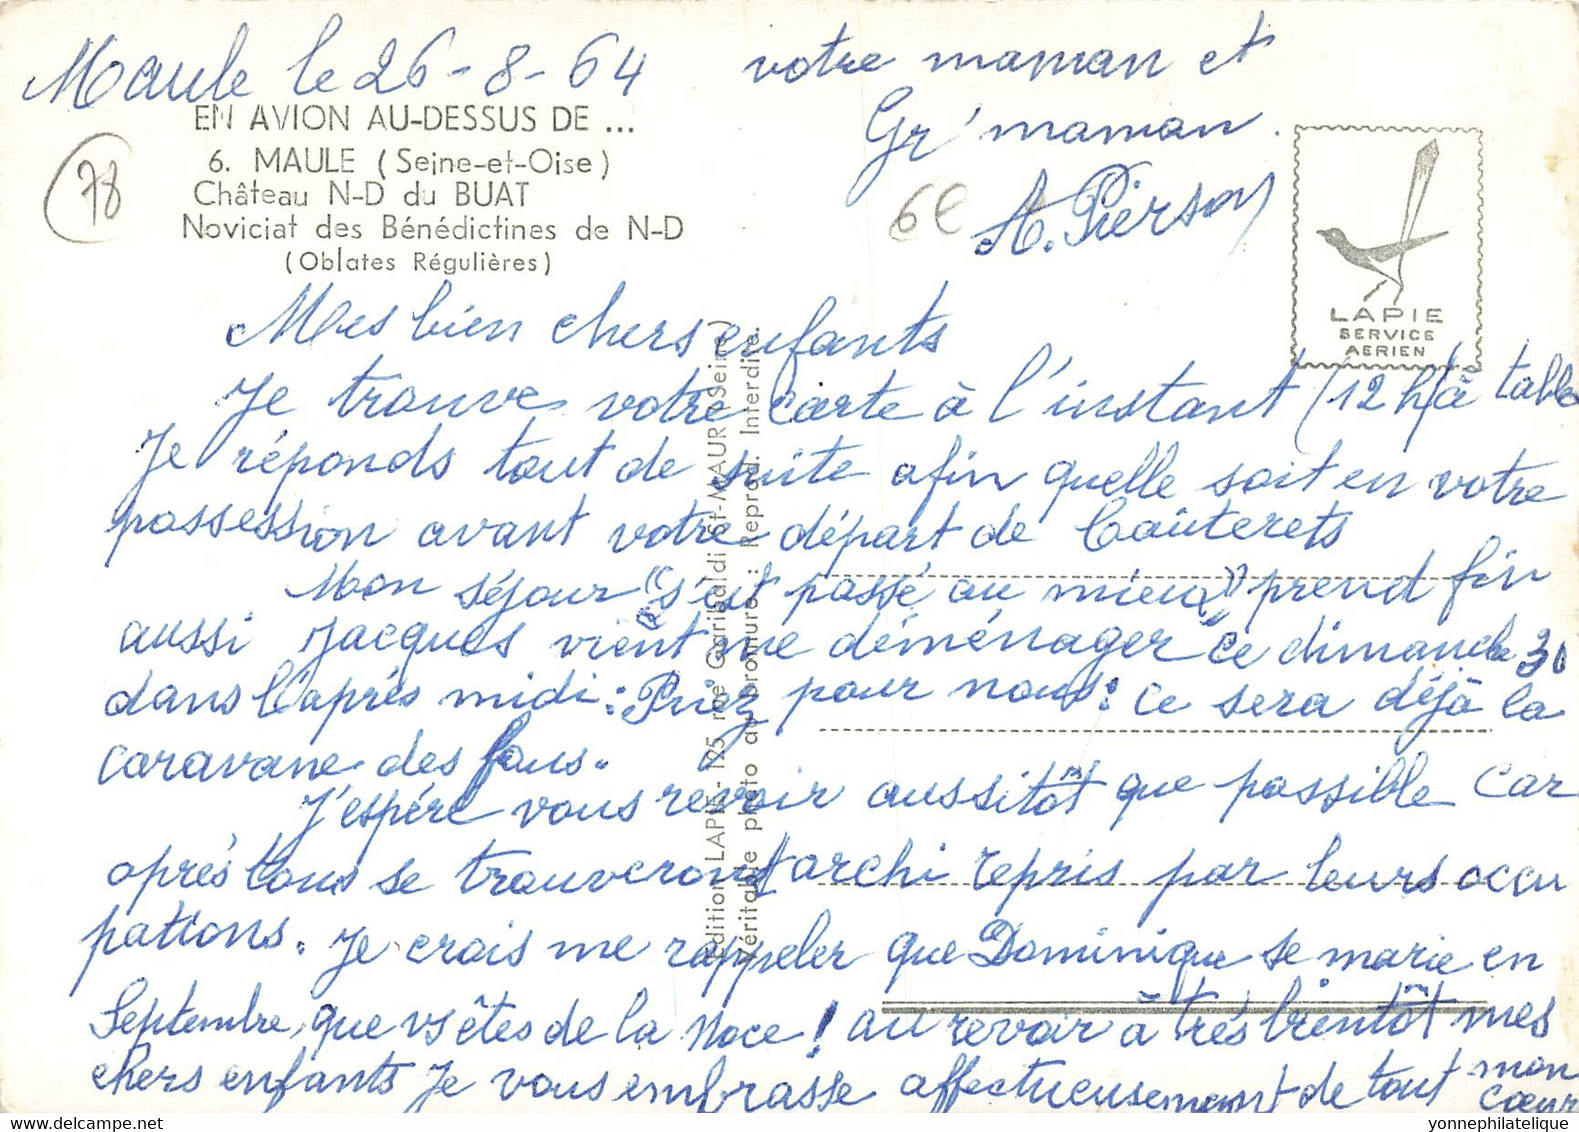 Maule le 26-8-64
EN AVION AU-DESSUS DE ...
6. MAULE (Seine-et-Oise)
Château N-D du BUAT
Noviciat des Bénédictines de N-D
(Oblates Régulières)
78
votre maman et
Gr'maman.
A. Pierson
6€
LAPIE
SERVICE
AERIEN
Mes bien chers enfants
Je trouve votre carte à l'instant (12 h) à table
Je réponds tout de suite afin quelle soit en votre
possession avant votre départ de Caûterets
Mon séjour "s'est passé au mieux" prend fin
aussi Jacques vient me déménager ce dimanche 30
dans l'après midi : Priez pour nous : ce sera déjà la
caravane des fous.
J'espére vous revoir aussitôt que possible car
après tous se trouveront archi repris par leurs occu
pations. Je crois me rappeler que Dominique se marie en
Septembre, que vs êtes de la Noce ! au revoir à très bientôt mes
chers enfants Je vous embrasse affectueusement de tout mon
cœur
Edition LAPIE - 125, rue Garibaldi St-MAUR (Seine)
Véritable photo au bromure : Reprod. Interdite.
yonnephilatelique